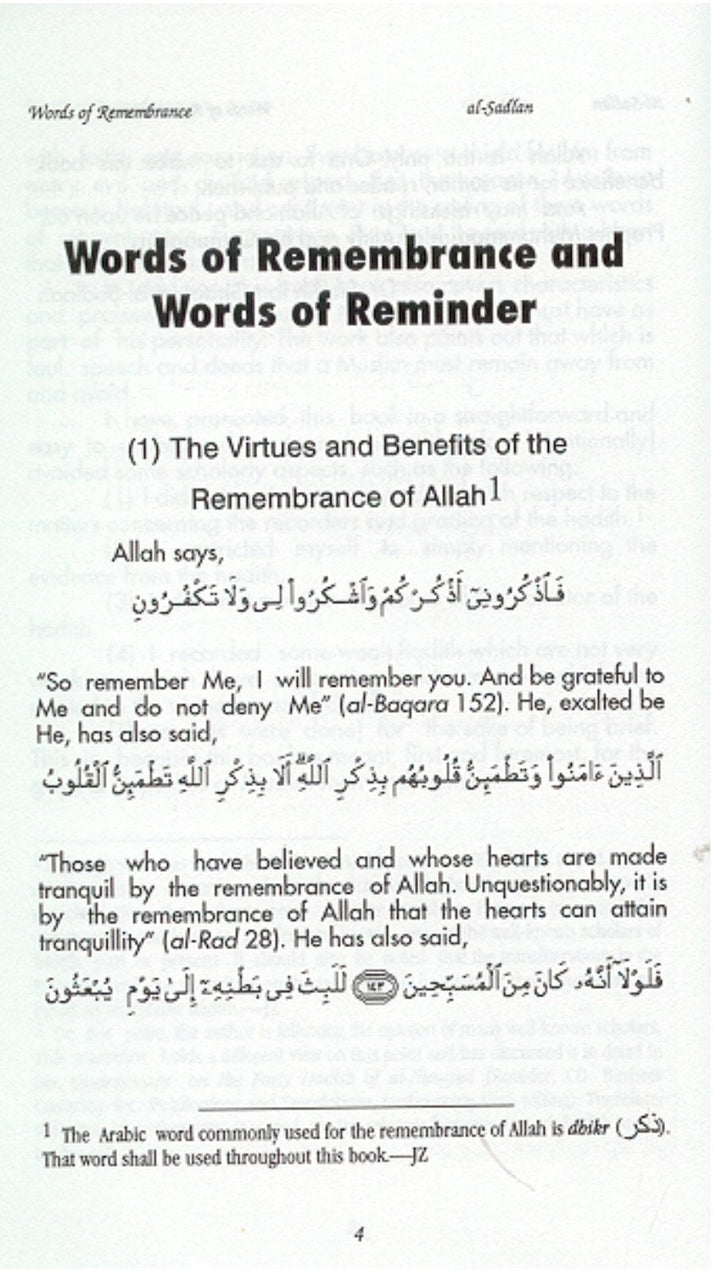 Words of Remembrance al-Sadlan
Words of Remembrance and
Words of Reminder
(1) The Virtues and Benefits of the
Remembrance of Allah1
Allah says,
فَٱذْكُرُونِىٓ أَذْكُرْكُمْ وَٱشْكُرُوا۟ لِى وَلَا تَكْفُرُونِ
"So remember Me, I will remember you. And be grateful to
Me and do not deny Me" (al-Baqara 152). He, exalted be
He, has also said,
ٱلَّذِينَ ءَامَنُوا۟ وَتَطْمَئِنُّ قُلُوبُهُم بِذِكْرِ ٱللَّهِ أَلَا بِذِكْرِ ٱللَّهِ تَطْمَئِنُّ ٱلْقُلُوبُ
"Those who have believed and whose hearts are made
tranquil by the remembrance of Allah. Unquestionably, it is
by the remembrance of Allah that the hearts can attain
tranquillity" (al-Rad 28). He has also said,
فَلَوْلَآ أَنَّهُۥ كَانَ مِنَ ٱلْمُسَبِّحِينَ ١٤٣ لَلَبِثَ فِى بَطْنِهِۦٓ إِلَىٰ يَوْمِ يُبْعَثُونَ
1 The Arabic word commonly used for the remembrance of Allah is dhikr (ذكر).
That word shall be used throughout this book.—JZ
4